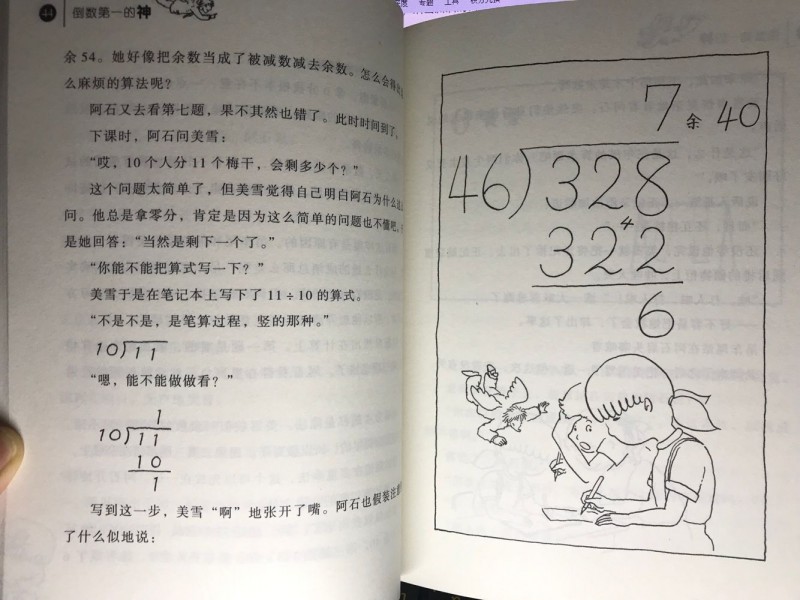 44 倒数第一的神
余 54。她好像把余数当成了被减数减去余数。怎么会得出
么麻烦的算法呢？
阿石又去看第七题，果不其然也错了。此时时间到了，
下课时，阿石问美雪：
“哎，10 个人分 11 个梅干，会剩多少个？”
这个问题太简单了，但美雪觉得自己明白阿石为什么这
问。他总是拿零分，肯定是因为这么简单的问题也不懂吧。
是她回答：“当然是剩下一个了。”
“你能不能把算式写一下？”
美雪于是在笔记本上写下了 11÷10 的算式。
“不是不是，是笔算过程，竖的那种。”
10)11
“嗯，能不能做做看？”
1
10)11
10
1
写到这一步，美雪“啊”地张开了嘴。阿石也假装注意
了什么似地说：
7 余 40
46)328
4
322
6